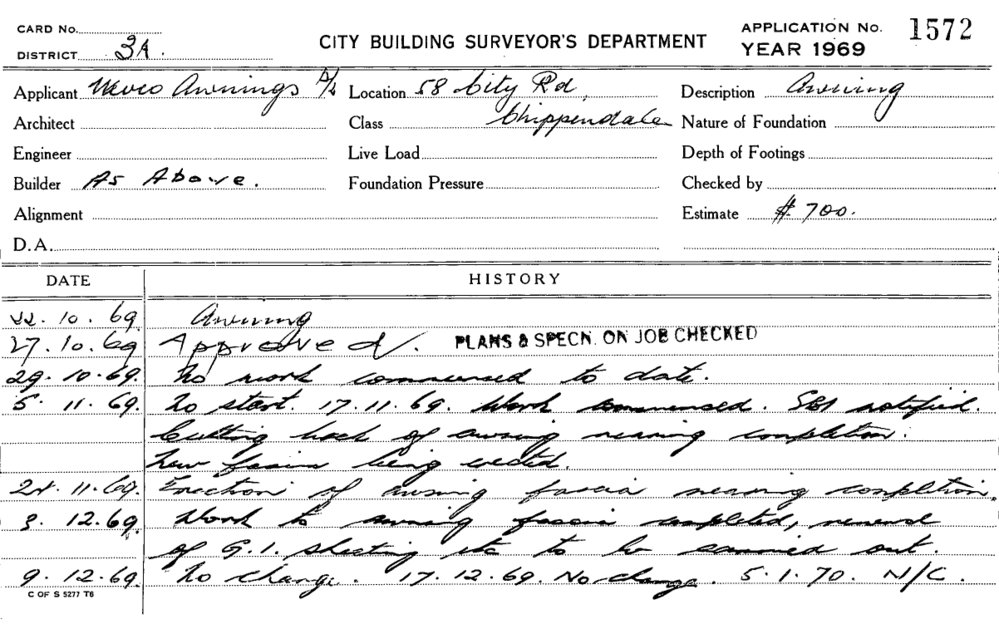 CARD No.
DISTRICT 3A.
CITY BUILDING SURVEYOR'S DEPARTMENT
APPLICATION No. 1572
YEAR 1969
Applicant Awnings P/L Location 58 City Rd, Description Awning
Architect Class Chippendale Nature of Foundation
Engineer Live Load Depth of Footings
Builder As Above. Foundation Pressure Checked by
Alignment Estimate $ 700.
D.A.
DATE HISTORY
22.10.69 Awning
27.10.69 Approved. PLANS & SPECN. ON JOB CHECKED
29.10.69. No work commenced to date.
5.11.69. No start. 17.11.69. Work commenced. notified.
Cutting back of awning nearing completion.
New fascia being erected.
11.69. Erection of awning fascia nearing completion.
3.12.69 Work to awning fascia completed, renewal
of G.I. sheeting etc to be carried out.
9.12.69. No change. 17.12.69. No change. 5.1.70. N/C.
C OF S 5277 T6